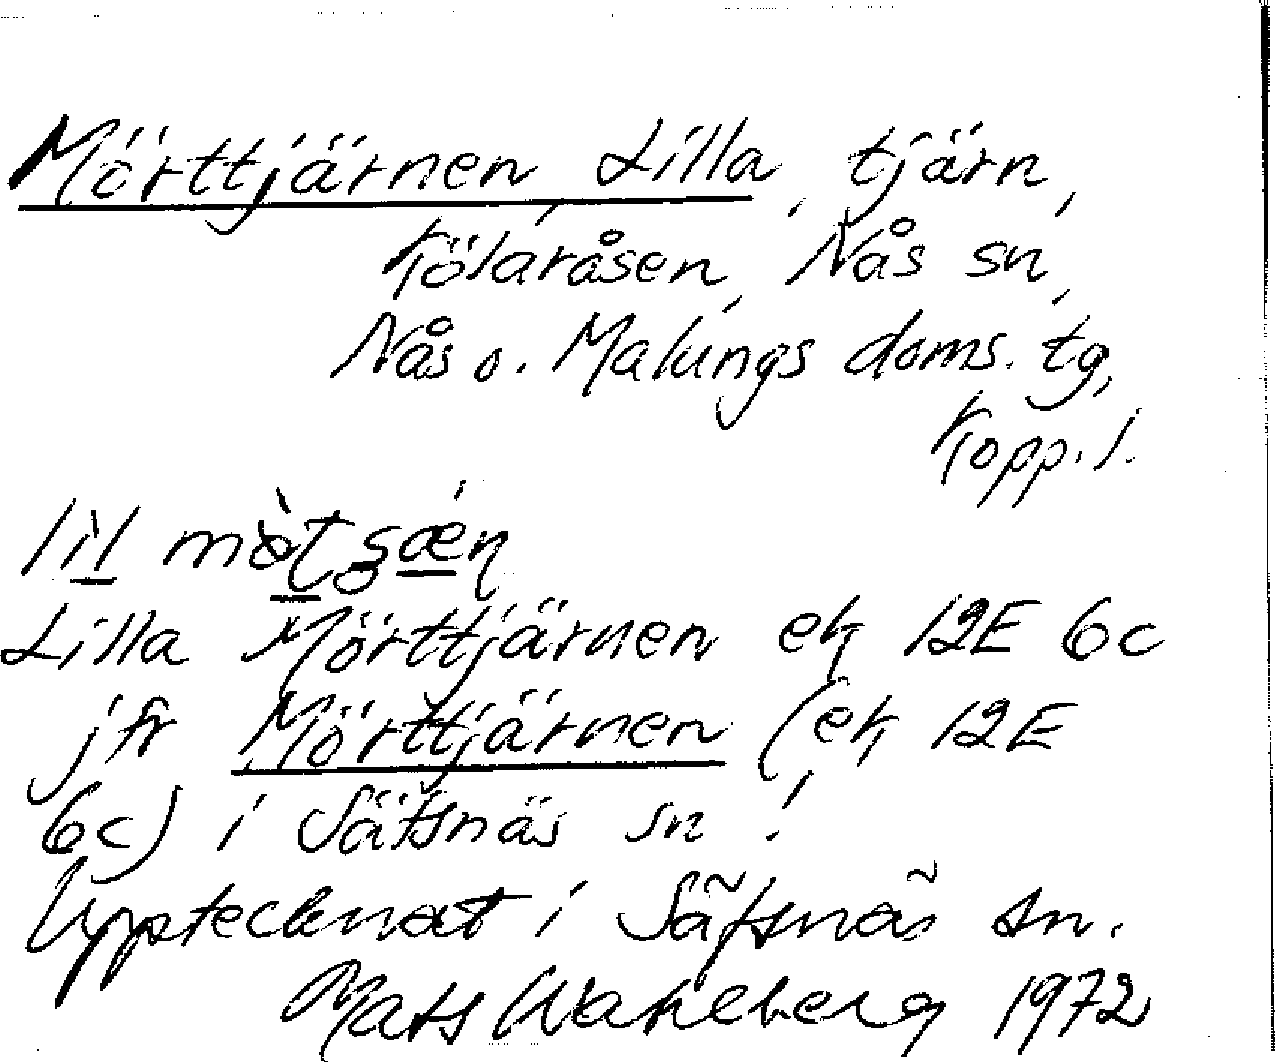 Mörttjärnen, Lilla, tjärn,
Kölaråsen, Nås sn,
Nås o. Malungs doms. tg,
Kopp. l.
lìl mö̀tsǽn
Lilla Mörttjärnen ek 12E 6c
jfr Mörttjärnen (ek 12E
6c) i Säfsnäs sn!
Upptecknat i Säfsnäs sn.
Mats Wahlberg 1972